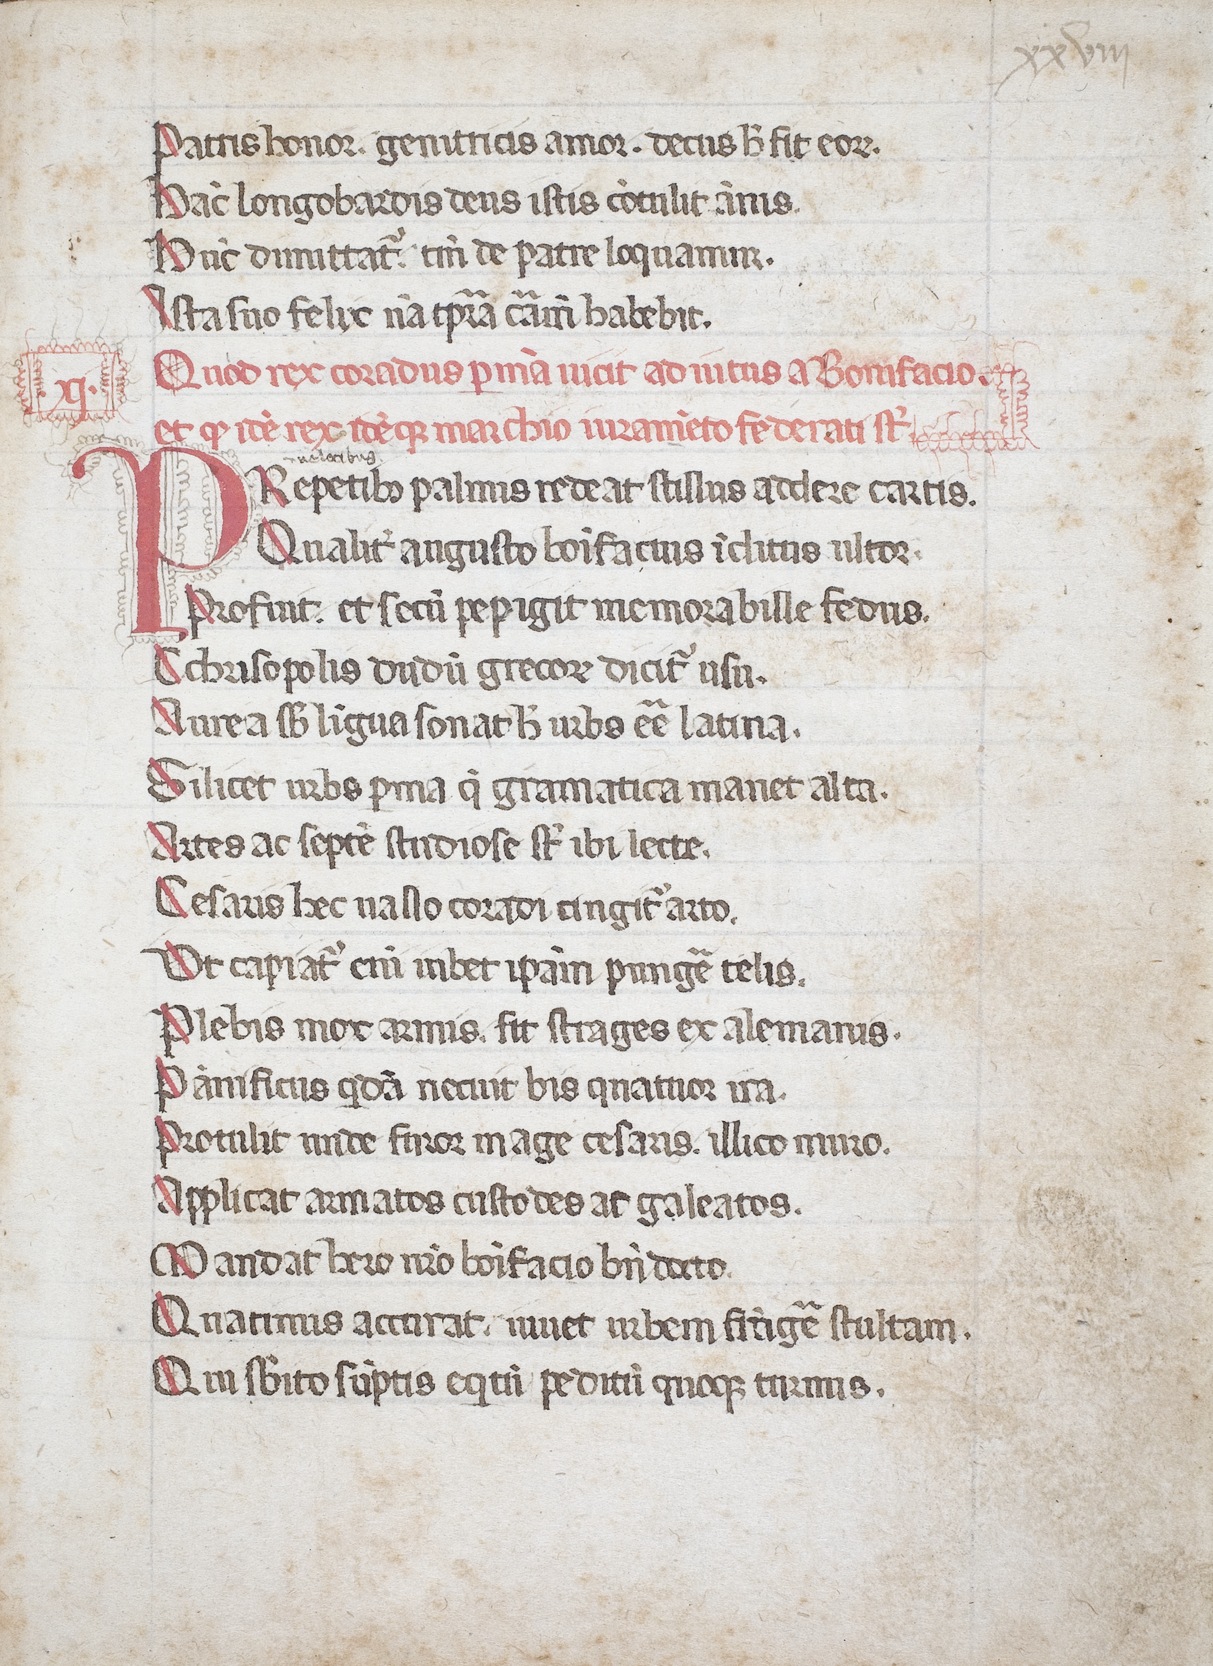 xxviii
Patris honor. genitricis amor. decus h̄ fit eoꝝ.
Hāc longobardis deus istis cōtulit ānis.
Nūc dimittat᷑. tm̄ de patre loquamur.
Ista suo felix nr̄a tp̄ra cām̄ habebit.
.xj. Quod rex coradus ꝑmā uicit adiutus a Bonifacio.
et ꝙ idē rex idēqꝫ marchio iuramēto federati st̄.
uelocibus
PRepetibꝫ palmis redeat stillus addere cartis.
Qualit᷑ augusto boīfacius īclitus ultor.
Profuit. et secū pepigit memorabille fedus.
Cchrisopolis dudū grecoꝝ dicit᷑ usu.
Aurea sb̄ līgua sonat h̄ urbs eē latina.
Silicet urbs ꝑma q̄ gramatica manet alta.
Artes ac septē studiose st̄ ibi lecte.
Cesaris hec uallo coradi cingit᷑ arto.
Ut capiat᷑ eni iubet ip̄am pungē telis.
Plebis mox armis. fit strages ex alemanis.
Pānificus qͥdā necuit bis quatuor ira.
Protulit unde furor mage cesaris. illico muro.
Applicat armatos custodes at galeatos.
Mandat hero nr̄o boīfacio bn̄ docto.
Quatinus accurat. iuuet urbem frāgē stultam.
Qui sb̄ito sūptis equū peditū quoqꝫ turmis.